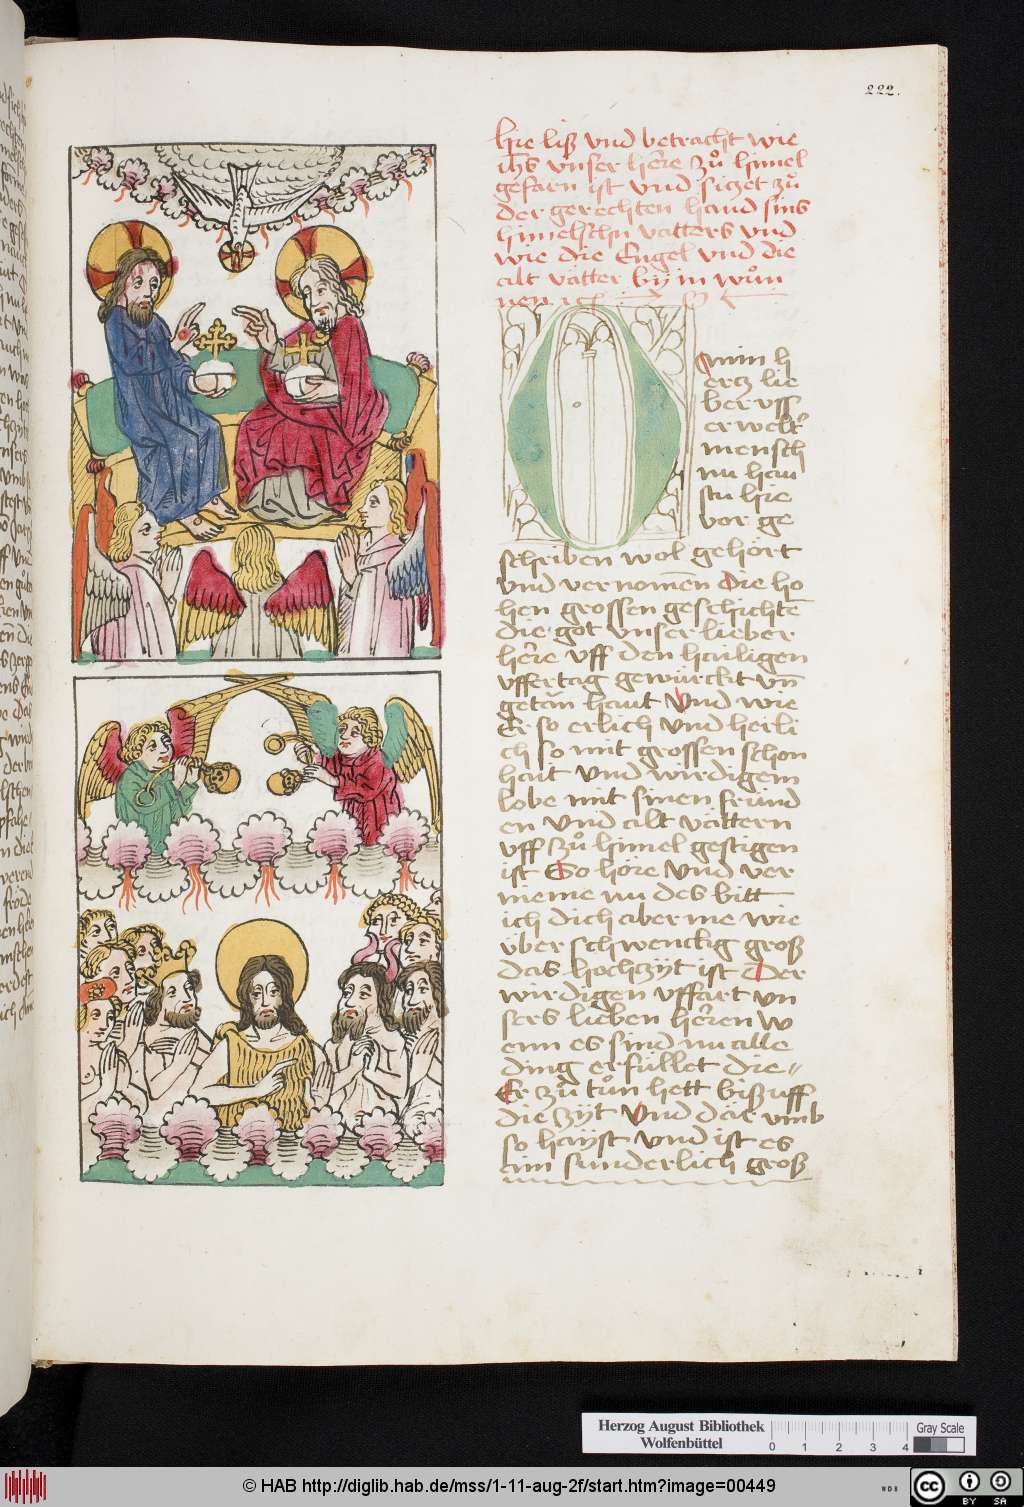 222.
hie liß vnd betracht wie
ih̄s vnser herre zů himel
gefarn ist vnd siczet zů
der gerechten hand sins
himelschn vatters vnd
wie die Engel vnd die
alt vätter by in wůn
nen
O
min h
ercz lie
ber vss
er welt̾
mensch
nu hau
stu hie
vor ge
schriben wol gehört
vnd vernomēn die ho
hen grossen geschichtē
die got vnser lieber
herre vff den hailigen
vffertag gewürckt vn̄
getān haut Vnd wie
Er so erlich vnd heili
ch so mit grossen schon
hait vnd wirdigem
lobe mit sinen fründ
en Vnd alt vättern
vff zů himel gestigen
ist So höre vnd ver
nieme nu des bitt
ich dich aber me wie
über schwenckig groß
das hochzyt ist Der
wirdigen vffart vn
sers lieben herren W
enn es sind nu alle
ding erfüllet die
Er zů tůn hett biß uff
die zyt Vnd dār vmb
so hayst vnd ist es
ain sunderlich groß
Herzog August Bibliothek
Wolfenbüttel
0 1 2 3 4
Gray Scale
© HAB http://diglib.hab.de/mss/1-11-aug-2f/start.htm?image=00449
WDB
cc BY SA